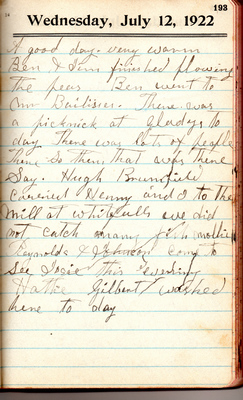 193
Wednesday, July 12, 1922
A good day very warm
Ben & Jim finished plowing
the peas Ben went to
Mr There was
a picknick at Gladys to
day There was lots of people
there So them that was there
Say. Hugh Brumfield
Carried Henny and I to the
mill at whitfulls we did
not catch many fish mollie
Reynolds & Johnson come to
See Josie this evening
Hattie Gilbert washed
here to day